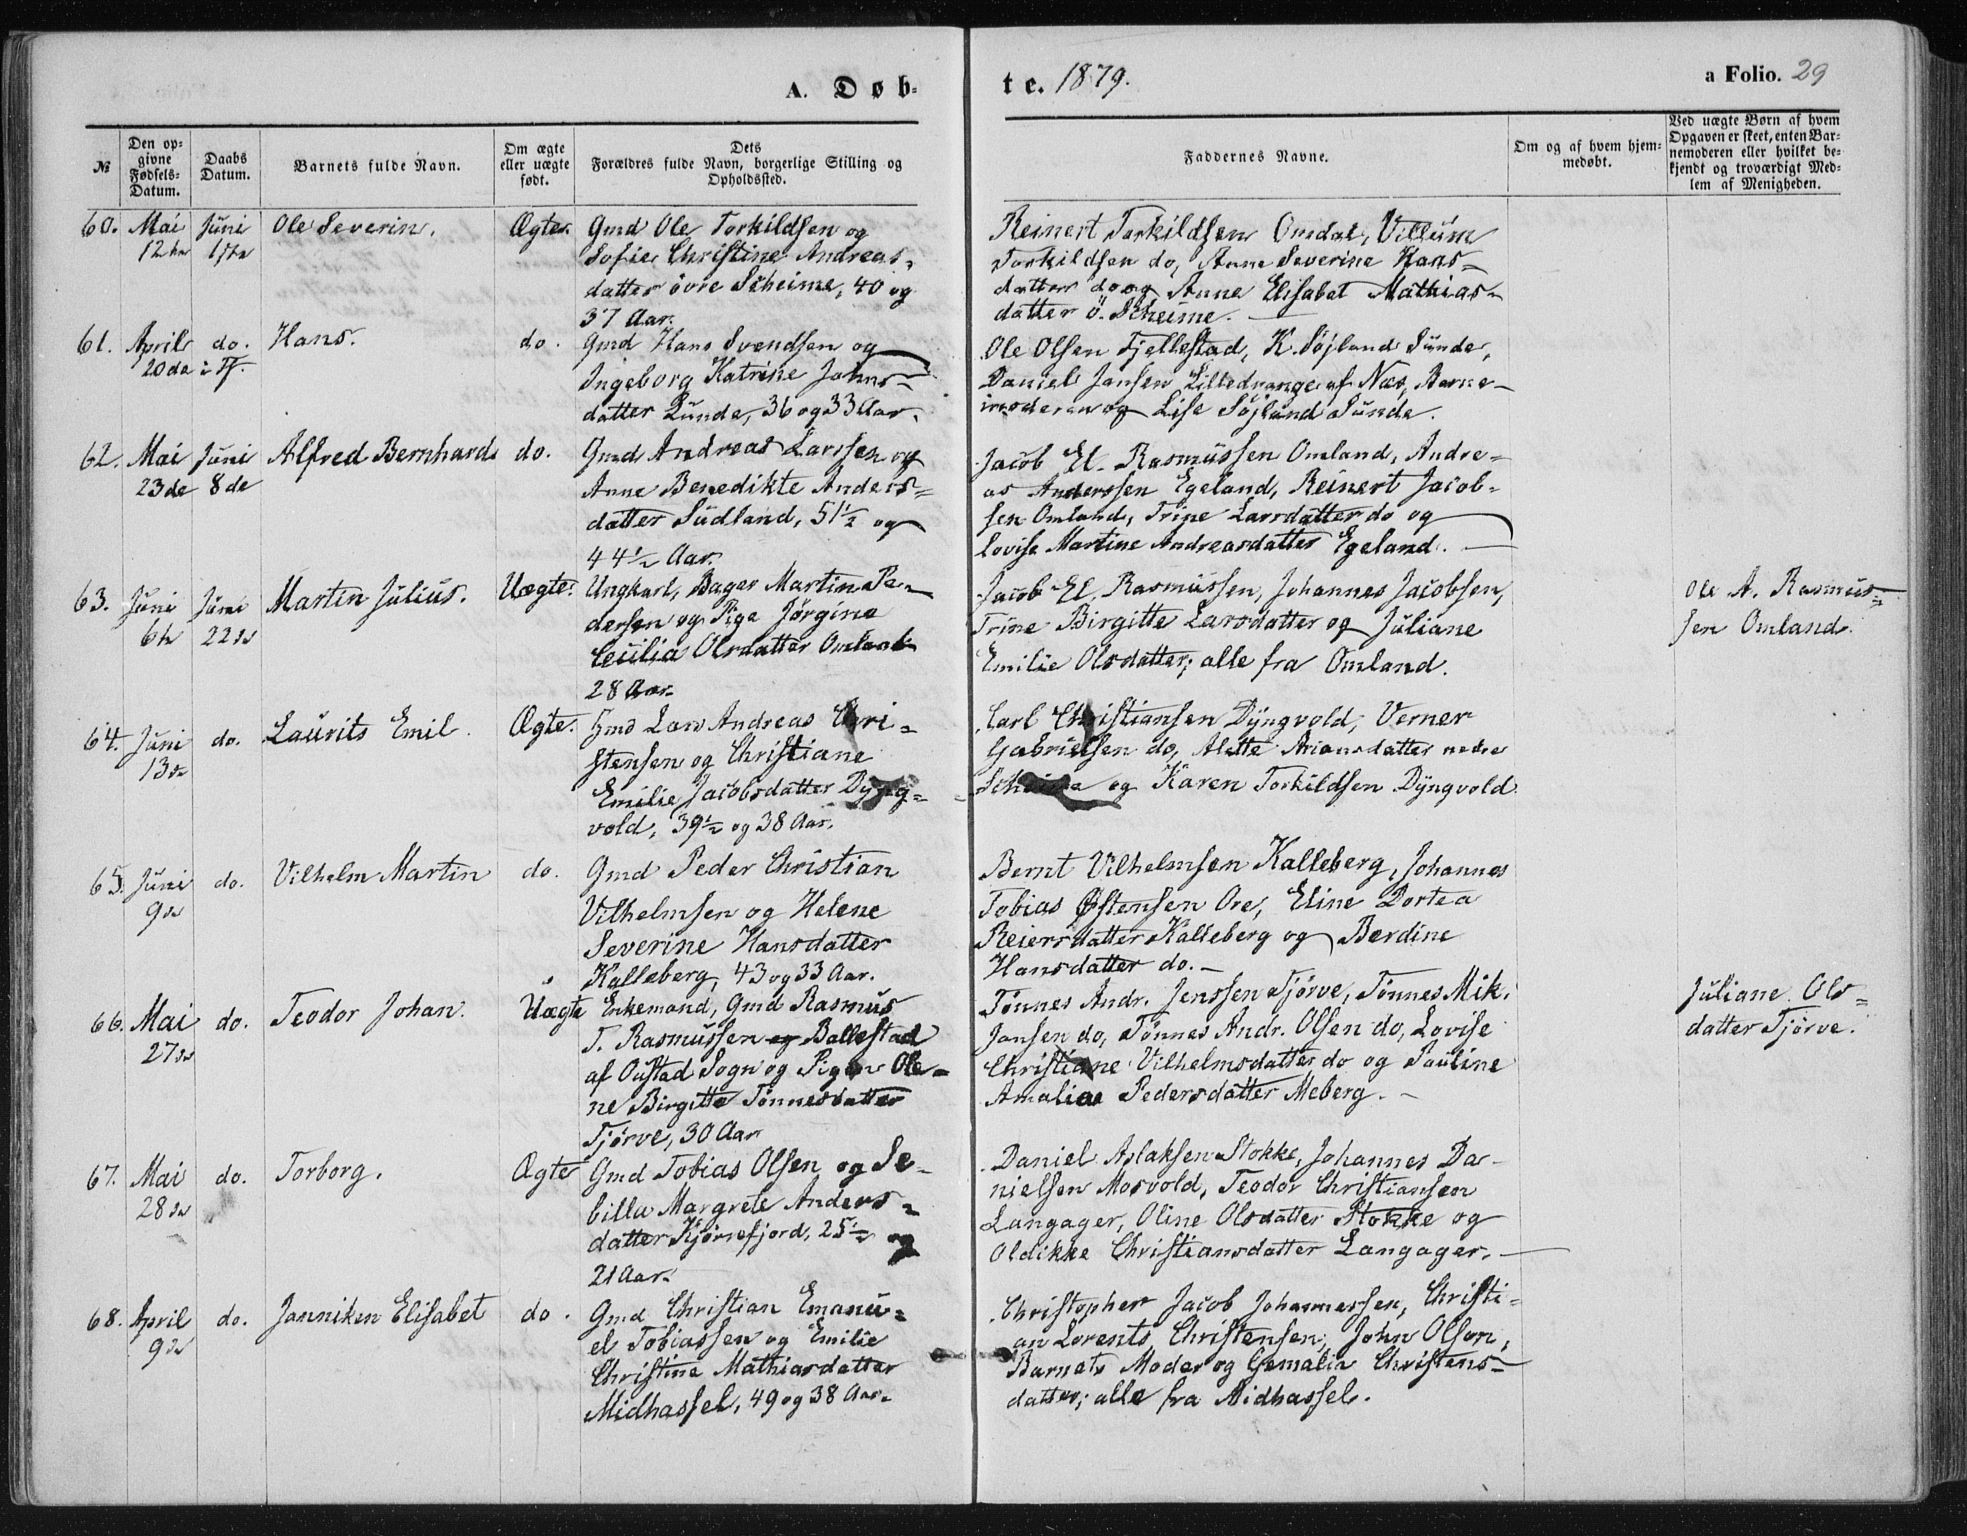 A. Døb-
te. 1879.
a Folio. 29
№
Den opgivne Fødsels-Datum.
Daabs Datum.
Barnets fulde Navn.
Om ægte eller uægte født.
Dets Forældres fulde Navn, borgerlige Stilling og Opholdssted.
Faddernes Navne.
Om og af hvem hjemmedøbt.
Ved uægte Børn af hvem Opgaven er skeet, enten Barnemoderen eller hvilket bekjendt og troværdigt Medlem af Menigheden.
60. Mai Juni Ole Severin. Ægte. Gmd Ole Torkildsen og
12te
Sofie Christine Andreas-
datter övre Scheime, 40 og
37 Aar.
Reinert Torkildsen Omdal, Villum
Torkildsen do, Anne Severine Hans-
datter do og Anne Elisabet Mathias-
datter ö. Scheime.
61. April do. Hans. do. Gmd Hans Svendsen og
20de
Ingeborg Katrine Johns-
datter Lunde, 36 og 33 Aar.
Ole Olsen Fjellestad, K. Söjland Sünde,
Daniel Jansen Lilledrange af Næs, Barne-
moderen og Lise Söjland Sünde.
62. Mai Juni Alfred Bernhard do. Gmd Andreas Larssen og
23de 8de
Anne Benedikte Anders-
datter Südland, 51½ og
44½ Aar.
Jacob El. Rasmüssen Omland, Andre-
as Anderssen Egeland, Reinert Jacob-
sen Omland, Trine Larsdatter do og
Lovise Martine Andreasdatter Egeland.
63. Juni Juni Martin Julius. Uægte. Ungkarl, Bager Martin Pe-
6te 22de
dersen og Pige Jörgine
Cecilia Olsdatter Omland
28 Aar.
Jacob El. Rasmussen, Johannes Jacobsen,
Trine Birgitte Larsdatter og Juliane
Emilie Olsdatter; alle fra Omland.
Ole A. Rasmus-
sen Omland.
64. Juni do. Laurits Emil. Ægte. Gmd Lars Andreas Chri-
13de
stensen og Christiane
Emilie Jacobsdatter Dyng-
vold, 39½ og 38 Aar.
Carl Christiansen Dyngvold, Verner
Gabrielsen do, Alette Ariansdatter nedre
Scheime og Karen Torkildsen Dyngvold.
65. Juni do. Vilhelm Martin do. Gmd Peder Christian
9de
Vilhelmsen og Helene
Severine Hansdatter
Kalleberg, 43 og 33 Aar.
Bernt Vilhelmsen Kalleberg, Johannes
Tobias Østensen Ore, Eline Dortea
Reiersdatter Kalleberg og Berdine
Hansdatter do.
66. Mai do. Teodor Johan. Uægte Enkemand, Gmd Rasmus
27de
T. Rasmussen og Ballestad
af Oustad Sogn og Pigen Ole-
ne Birgitte Tönnesdatter
Tjörve, 30 Aar
Tönnes Andr. Jenssen Tjörve, Tönnes Mik.
Jansen do, Tönnes Andr. Olsen do, Lovise
Christiane Vilhelmsdatter do og Pauline
Amaliae Pedersdatter Meberg.
Juliane Ols-
datter Tjörve.
67. Mai do. Torborg. Ægte Gmd Tobias Olsen og Se-
28de
billa Margrete Anders-
datter Kjörrefjord, 25½ og
21 Aar.
Daniel Aslaksen Stokke, Johannes Da-
nielsen Mosvold, Teodor Christiansen
Langager, Oline Olsdatter Stokke og
Oldikke Christiansdatter Langager.
68. April do. Janniken Elisabet do. Gmd Christian Emanu-
9de
el Tobiassen og Emilie
Christine Mathiasdatter
Midhassel, 49 og 38 Aar.
Christopher Jacob Johannessen, Christi-
an Lorents Christensen, John Olson,
Barnets Moder og Gemalie Christens-
datter; alle fra Midhassel.